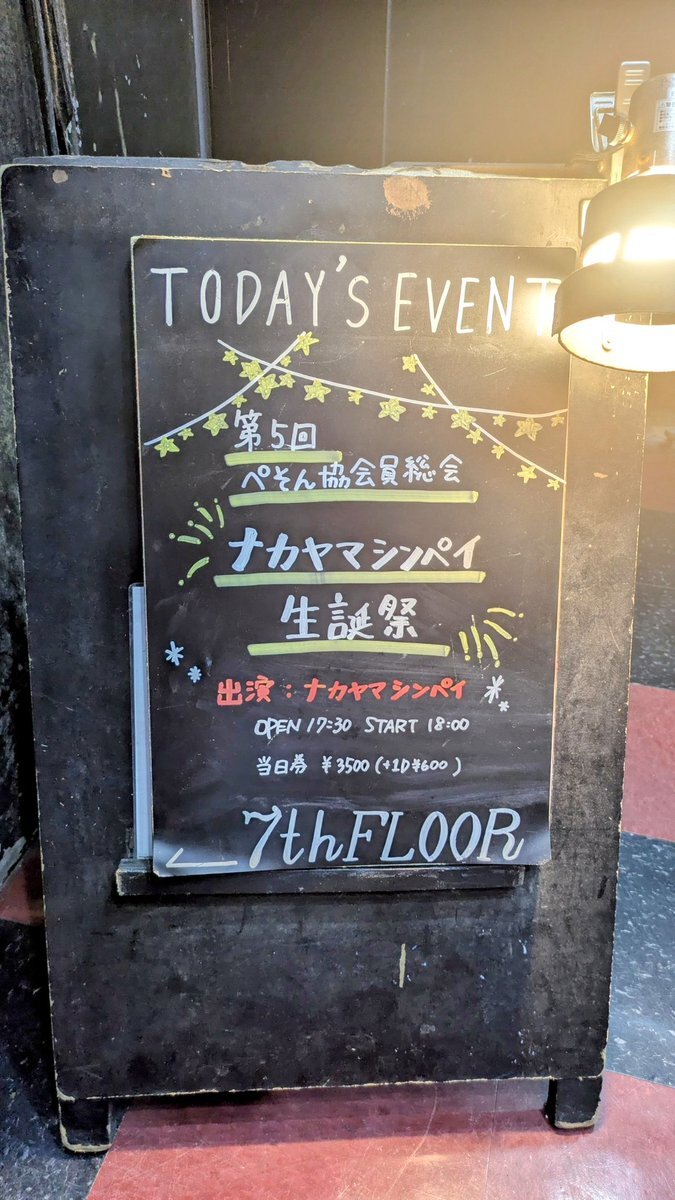 TODAY'S EVENT
第5回
ぺそん協会員総会
ナカヤマシンペイ
生誕祭
出演：ナカヤマシンペイ
OPEN 17:30 START 18:00
当日券 ¥3500(+1D¥600)
7thFLOOR